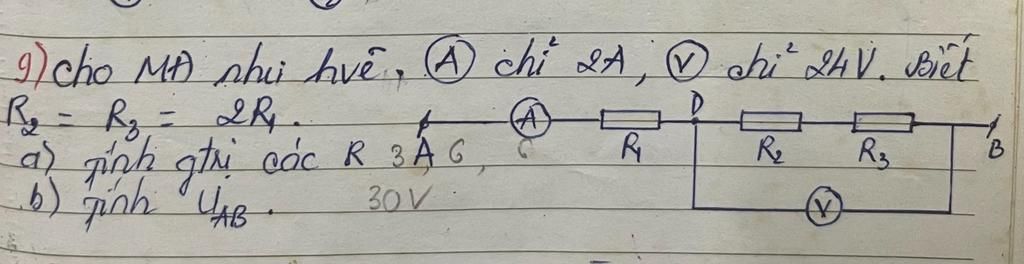 9) cho MĐ như hvẽ, (A) chỉ 2A, (V) chỉ 24V. Biết
R₂ = R₃ = 2R₁.
a) Tính gtrị các R 3, 6, 6
b) Tính U_AB. 30V
A (A) R₁ D R₂ R₃ B
(V)